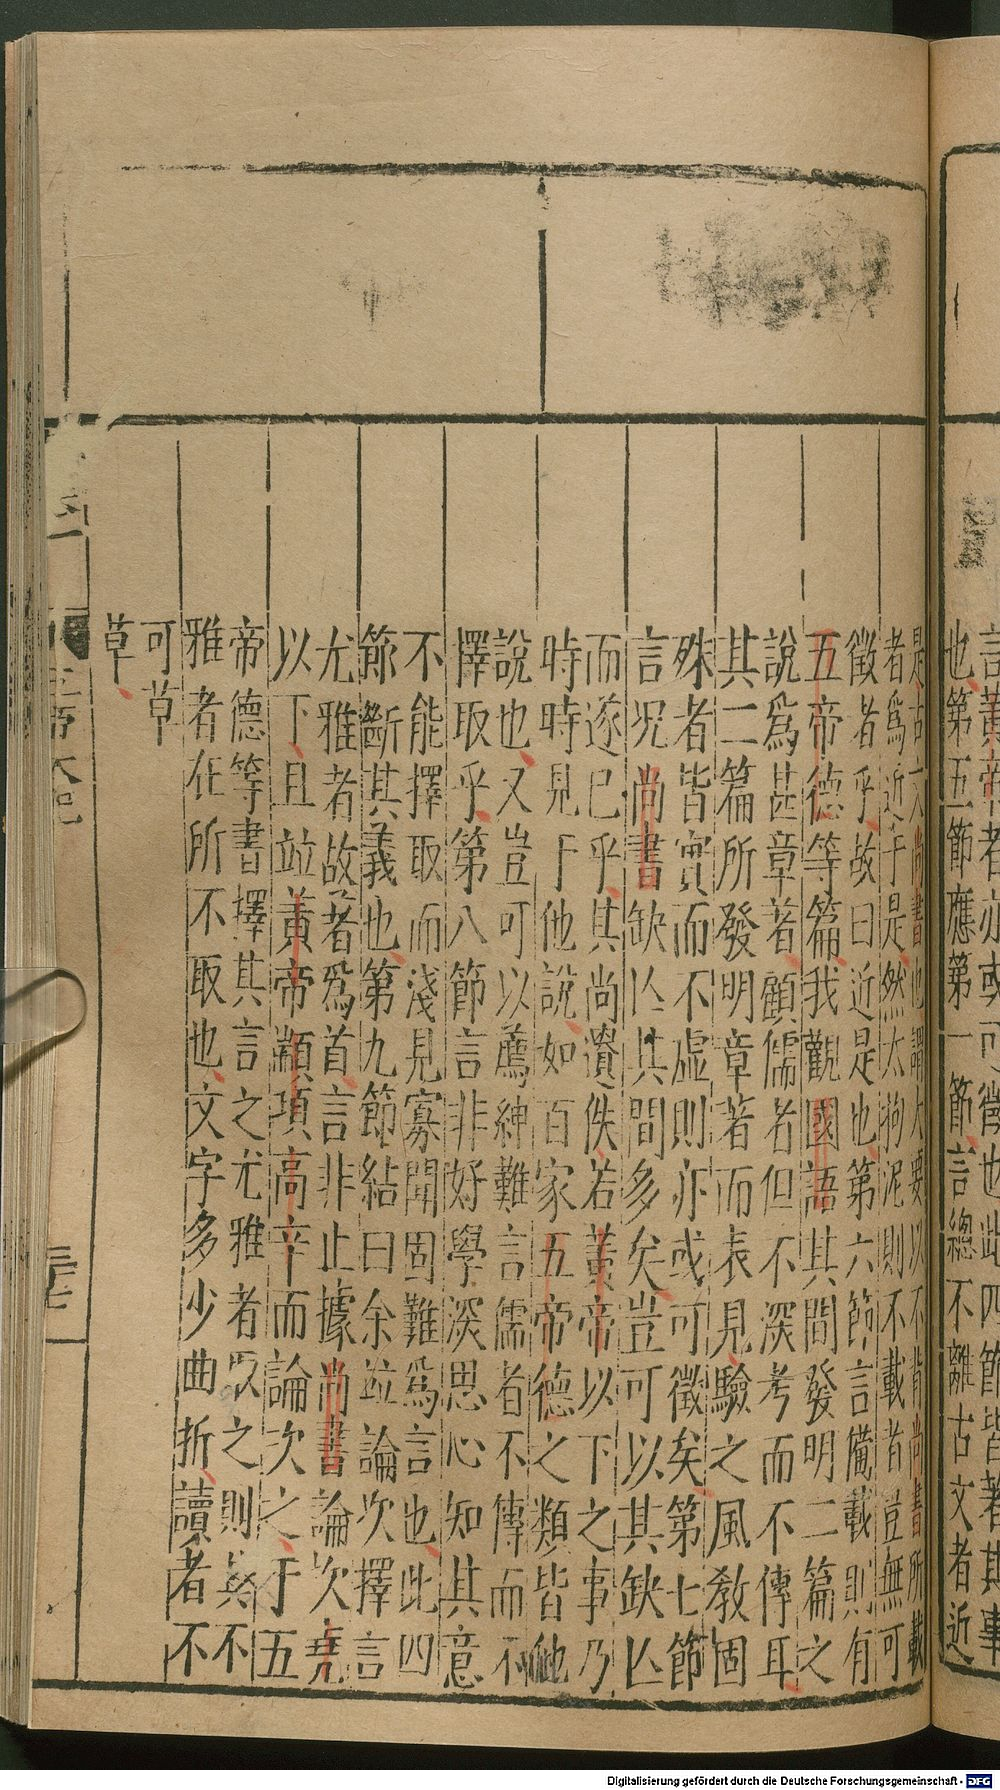 言黃帝者亦或可徵也此四節皆著其事
也第五節應第一節言總不離古文者近
是古文尚書也謂大要以不背尚書所載
者爲近于是然太拘泥則不載者豈無可
徵者乎故曰近是也第六節言備載則有
五帝德等篇我觀國語其間發明二篇之
說爲甚章著顧儒者但不深考而不傳耳
其二篇所發明章著而表見驗之風教固
殊者皆實而不虛則亦或可徵矣第七節
言況尚書缺亾其間多矣豈可以其缺亾
而遂已乎其尚遺佚若黃帝以下之事乃
時時見于他說如百家五帝德之類皆他
說也又豈可以薦紳難言儒者不傳而不
擇取乎第八節言非好學深思心知其意
不能擇取而淺見寡聞固難爲言也此四
節斷其義也第九節結曰余竝論次擇言
尤雅者故著爲首言非止據尚書論次堯
以下且竝黃帝顓頊高辛而論次之于五
帝德等書擇其言之尤雅者取之則其不
雅者在所不取也文字多少曲折讀者不
可草
草
五帝本紀
三十七
Digitalisierung gefördert durch die Deutsche Forschungsgemeinschaft - DFG